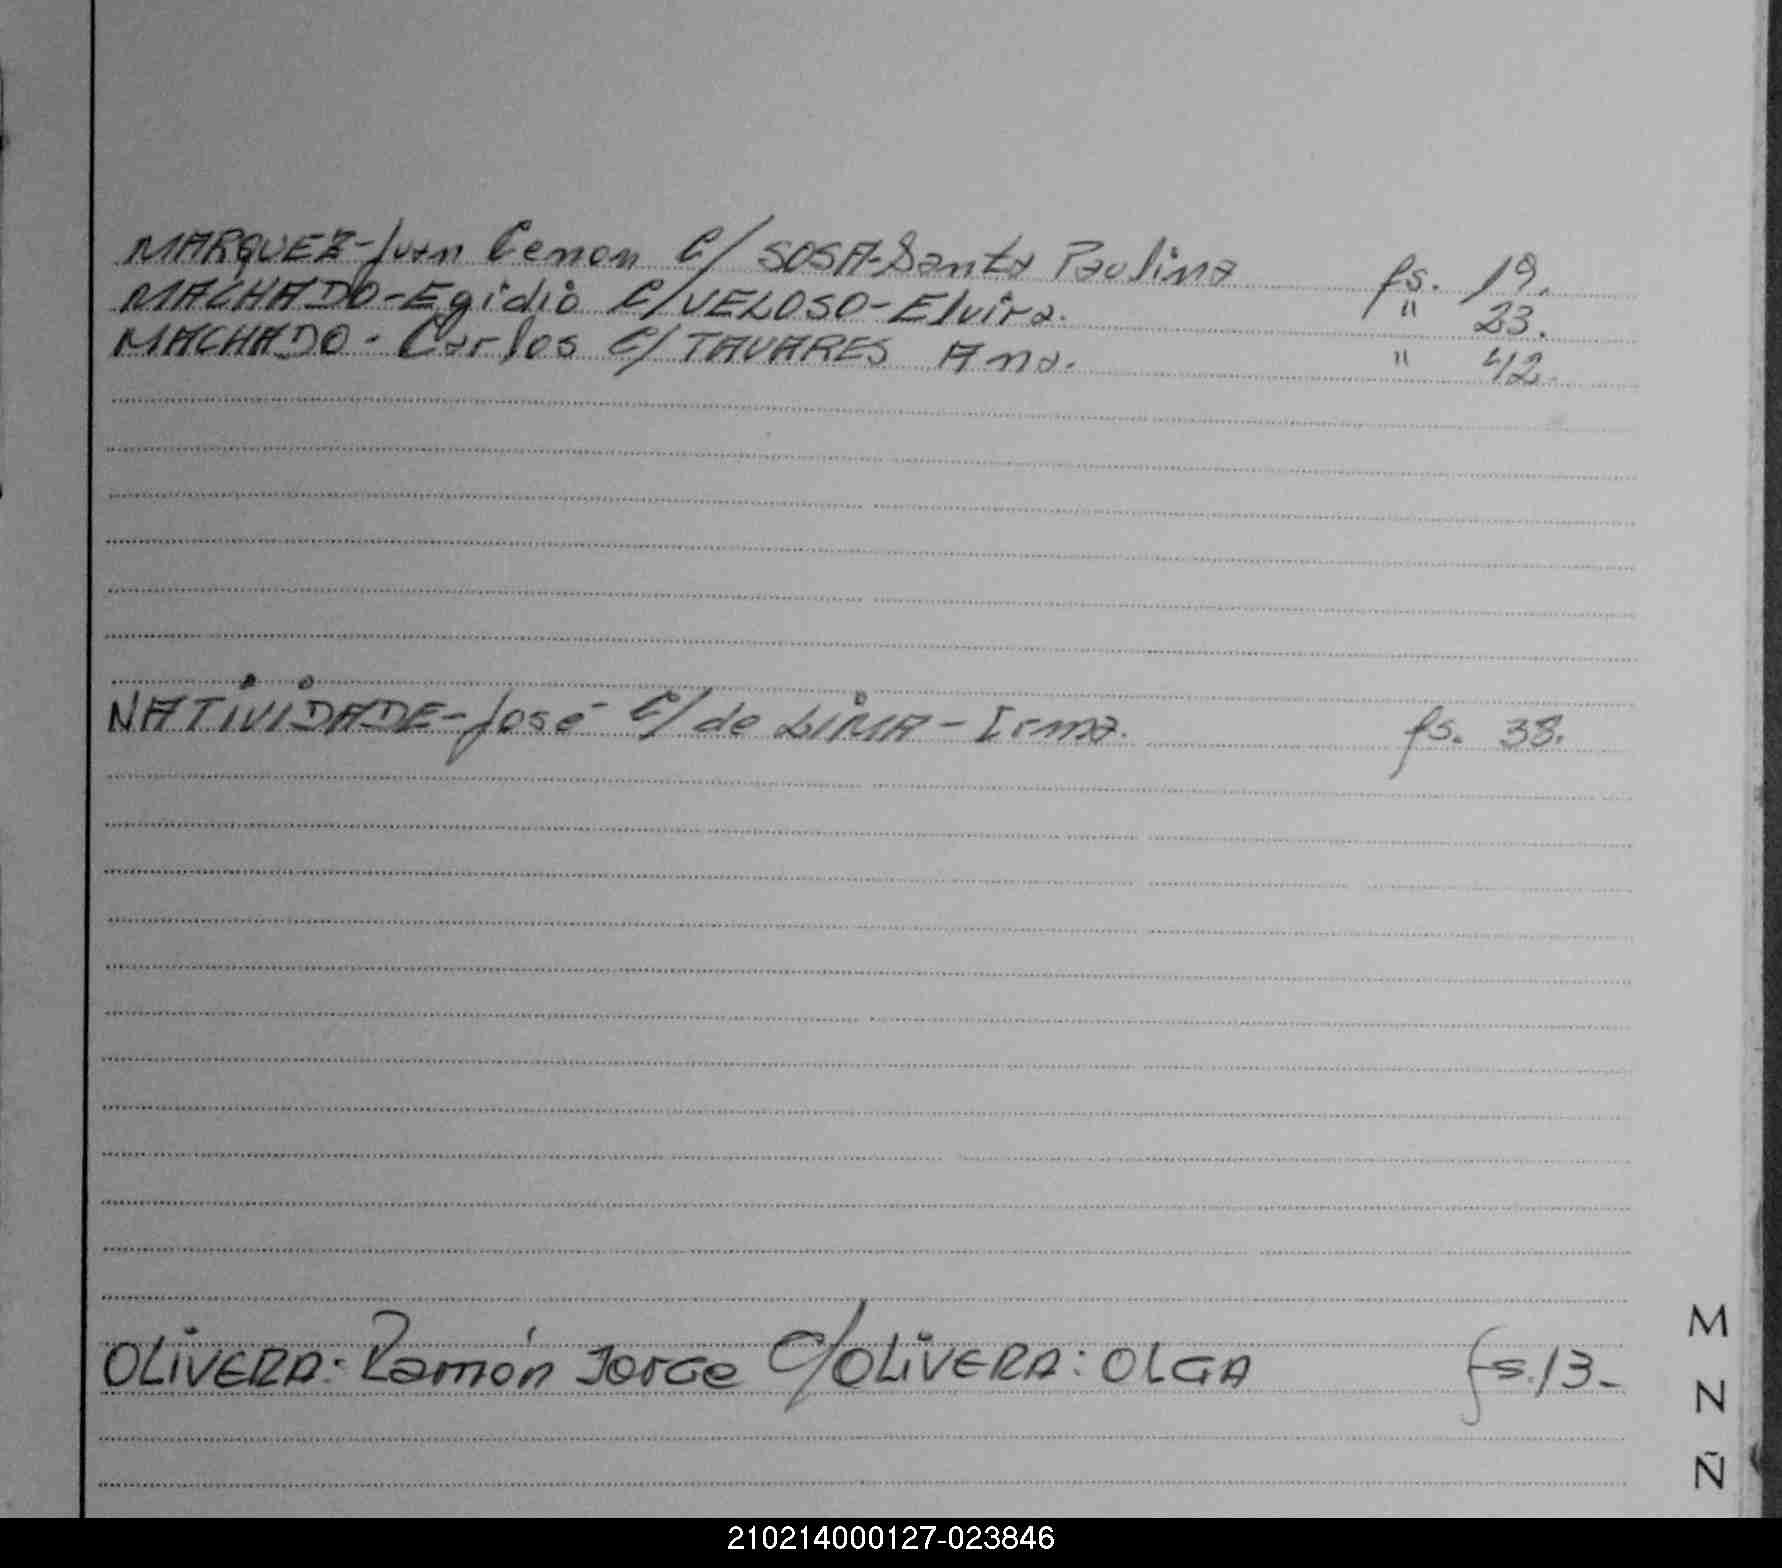 MARQUEZ-Juan Cenon C/ SOSA-Santa Paulina fs. 19.
MACHADO-Egidio C/VELOSO-Elvira. " 23.
MACHADO - Carlos C/ TAVARES Ana. " 42.
NATIVIDADE-José C/ de LIMA - Irma. fs. 38.
OLIVERA: Ramón Jorge C/OLIVERA: OLGA fs.13-
M
N
Ñ
210214000127-023846